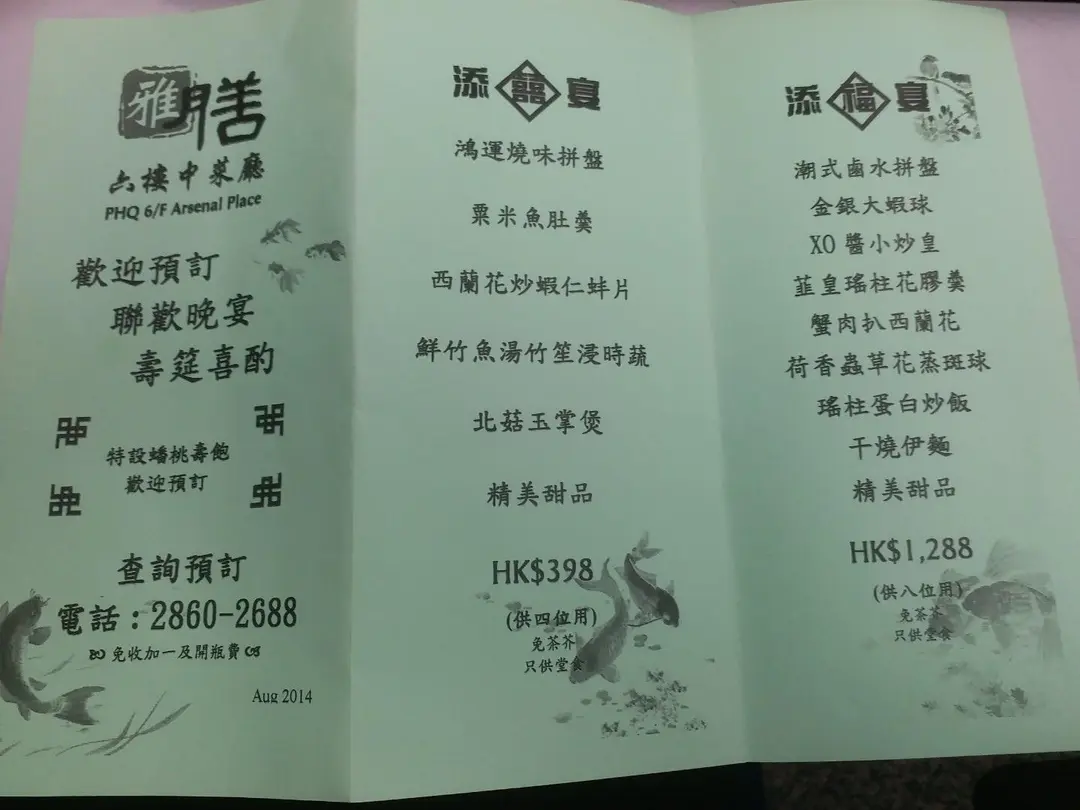 雅膳
六樓中菜廳
PHQ 6/F Arsenal Place
歡迎預訂
聯歡晚宴
壽筵喜酌
特設蟠桃壽飽
歡迎預訂
查詢預訂
電話：2860-2688
免收加一及開瓶費
Aug 2014
添囍宴
鴻運燒味拼盤
粟米魚肚羹
西蘭花炒蝦仁蚌片
鮮竹魚湯竹笙浸時蔬
北菇玉掌煲
精美甜品
HK$398
(供四位用)
免茶芥
只供堂食
添福宴
潮式鹵水拼盤
金銀大蝦球
XO 醬小炒皇
韮皇瑤柱花膠羹
蟹肉扒西蘭花
荷香蟲草花蒸斑球
瑤柱蛋白炒飯
干燒伊麵
精美甜品
HK$1,288
(供八位用)
免茶芥
只供堂食